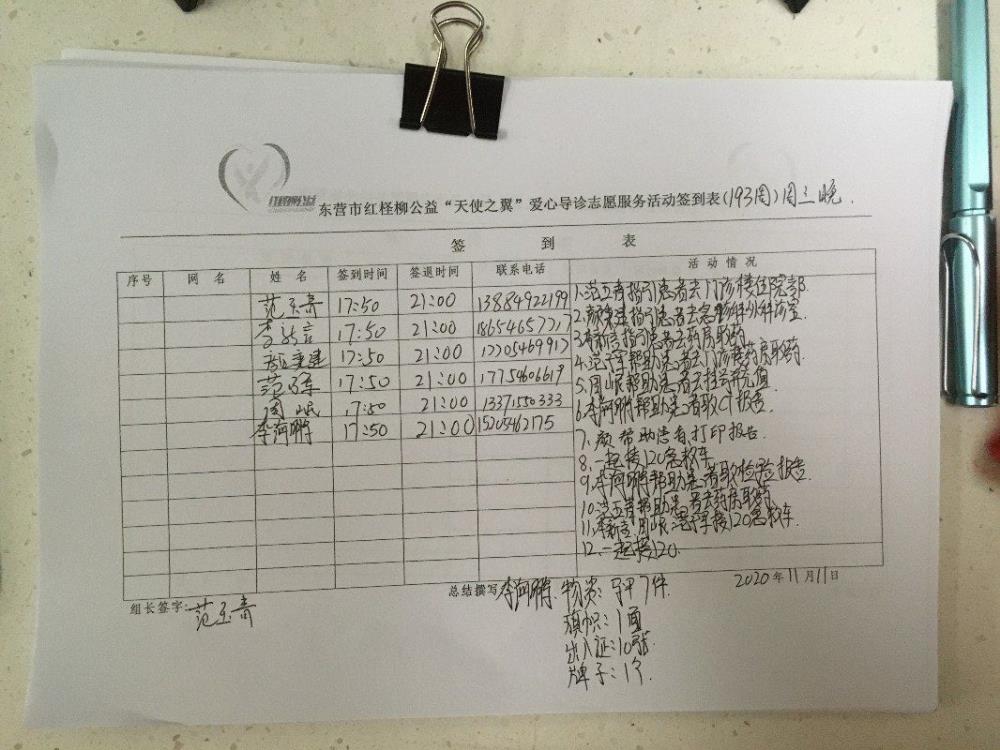 红柽柳公益
东营市红柽柳公益“天使之翼”爱心导诊志愿服务活动签到表(193周)周三晚.
签 到 表
序号 网 名 姓 名 签到时间 签退时间 联系电话 活 动 情 况
范玉青 17:50 21:00 13884922199
李新言 17:50 21:00 18654657717
颜秉建 17:50 21:00
17:50 21:00 17754606619
周岷 17:50 21:00 13371550333
李河鹏 17:50 21:00 15205462175
1.范玉青指引患者去门诊楼住院部.
2.颜秉建指引患者去急诊
3.李新言指引患者去药房取药
4.帮助患者去门诊楼药房取药.
5.周岷帮助患者去挂号并充值.
6.李河鹏帮助患者取CT报告.
7.颜 帮助患者打印报告.
8.一起接120急救车.
9.李河鹏帮助患者取检验报告.
10.范玉青帮助患者去药房取药
11.李新言.周岷.接120急救车.
12.一起接120.
组长签字:范玉青
总结撰写 李河鹏.
2020年11月11日
物资:马甲7件
旗帜:1面
出入证:10张
牌子:1个.